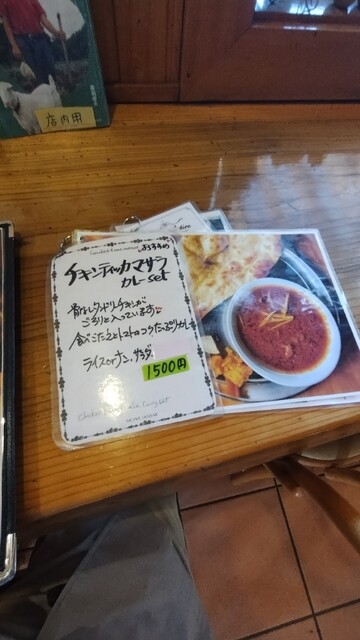 店内用
おすすめ
チキンティッカマサラ
カレーset
骨なしタンドリーチキンが
ごろりと入っています
食べごたえとトマトのコクたっぷりカレー
ライスorナン、サラダ
1500円